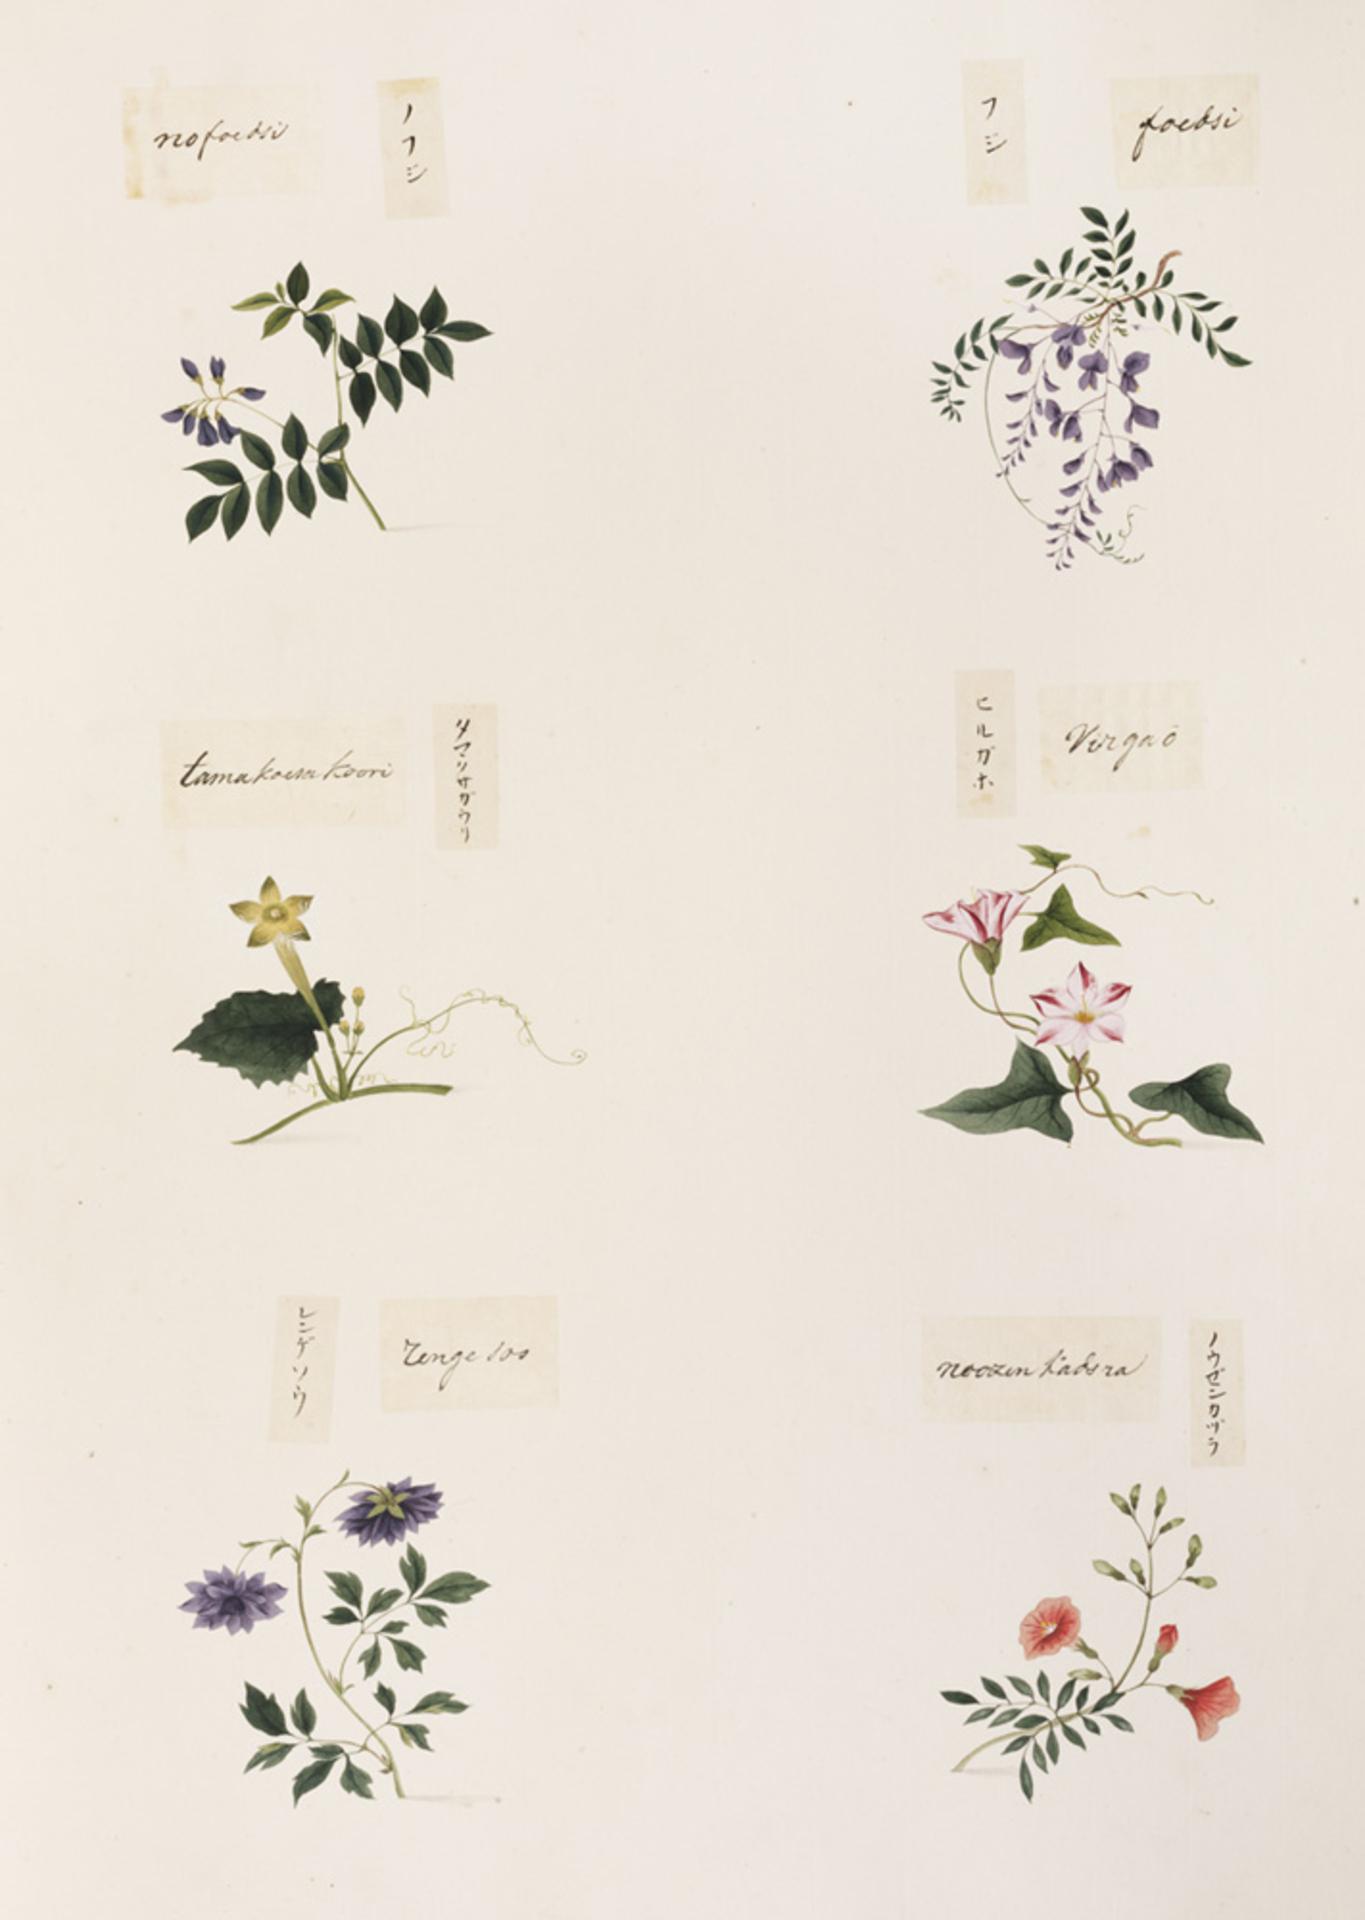 nofoedsi
ノフジ
フジ
foedsi
tamakoesa koori
タマクサガウリ
ヒルガホ
Virgaō
レンゲソウ
Rengesoo
noozenkadsra
ノウゼンカヅラ